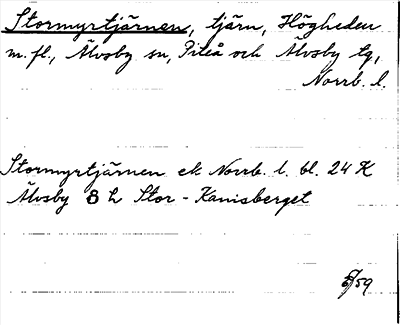 Stormyrtjärnen, tjärn, Högheden
m. fl., Älvsby sn, Piteå och Älvsby tg,
Norrb. l.
Stormyrtjärnen ek Norrb. l. bl. 24 K
Älvsby 8 h Stor-Kanisberget
/59